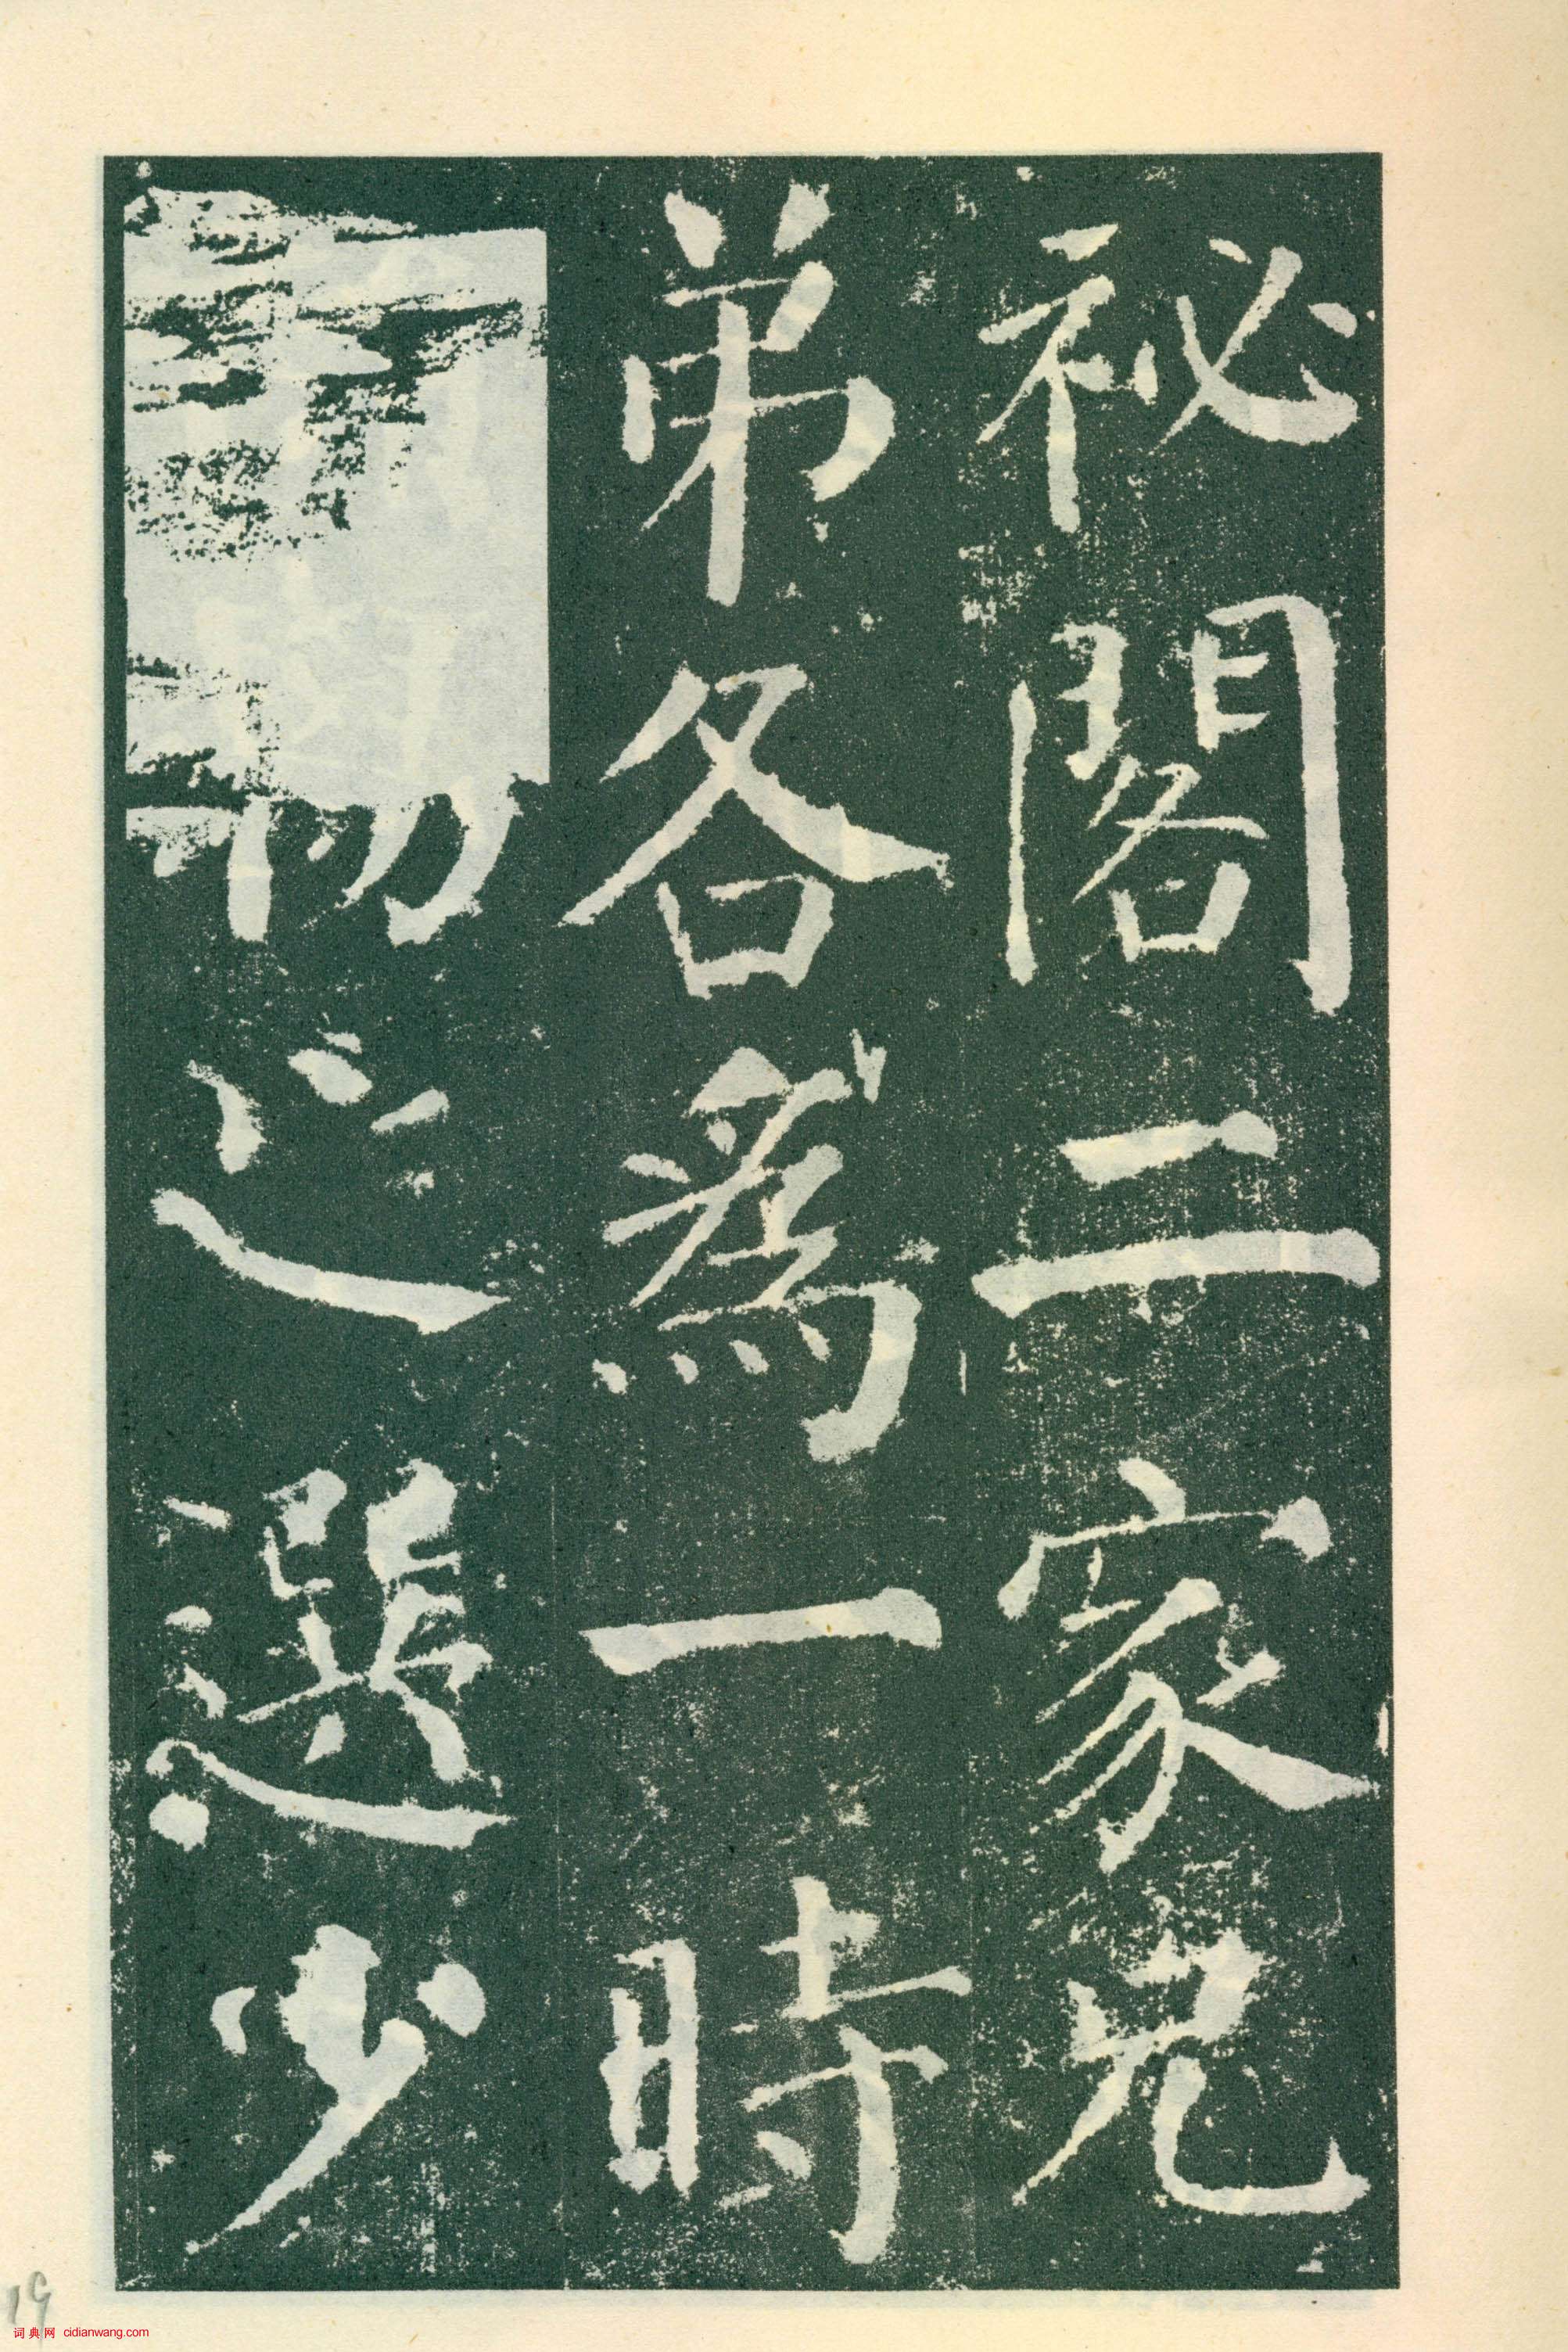 祕閣二家兄
弟各為一時
物之選少
19
词典网 cidianwang.com